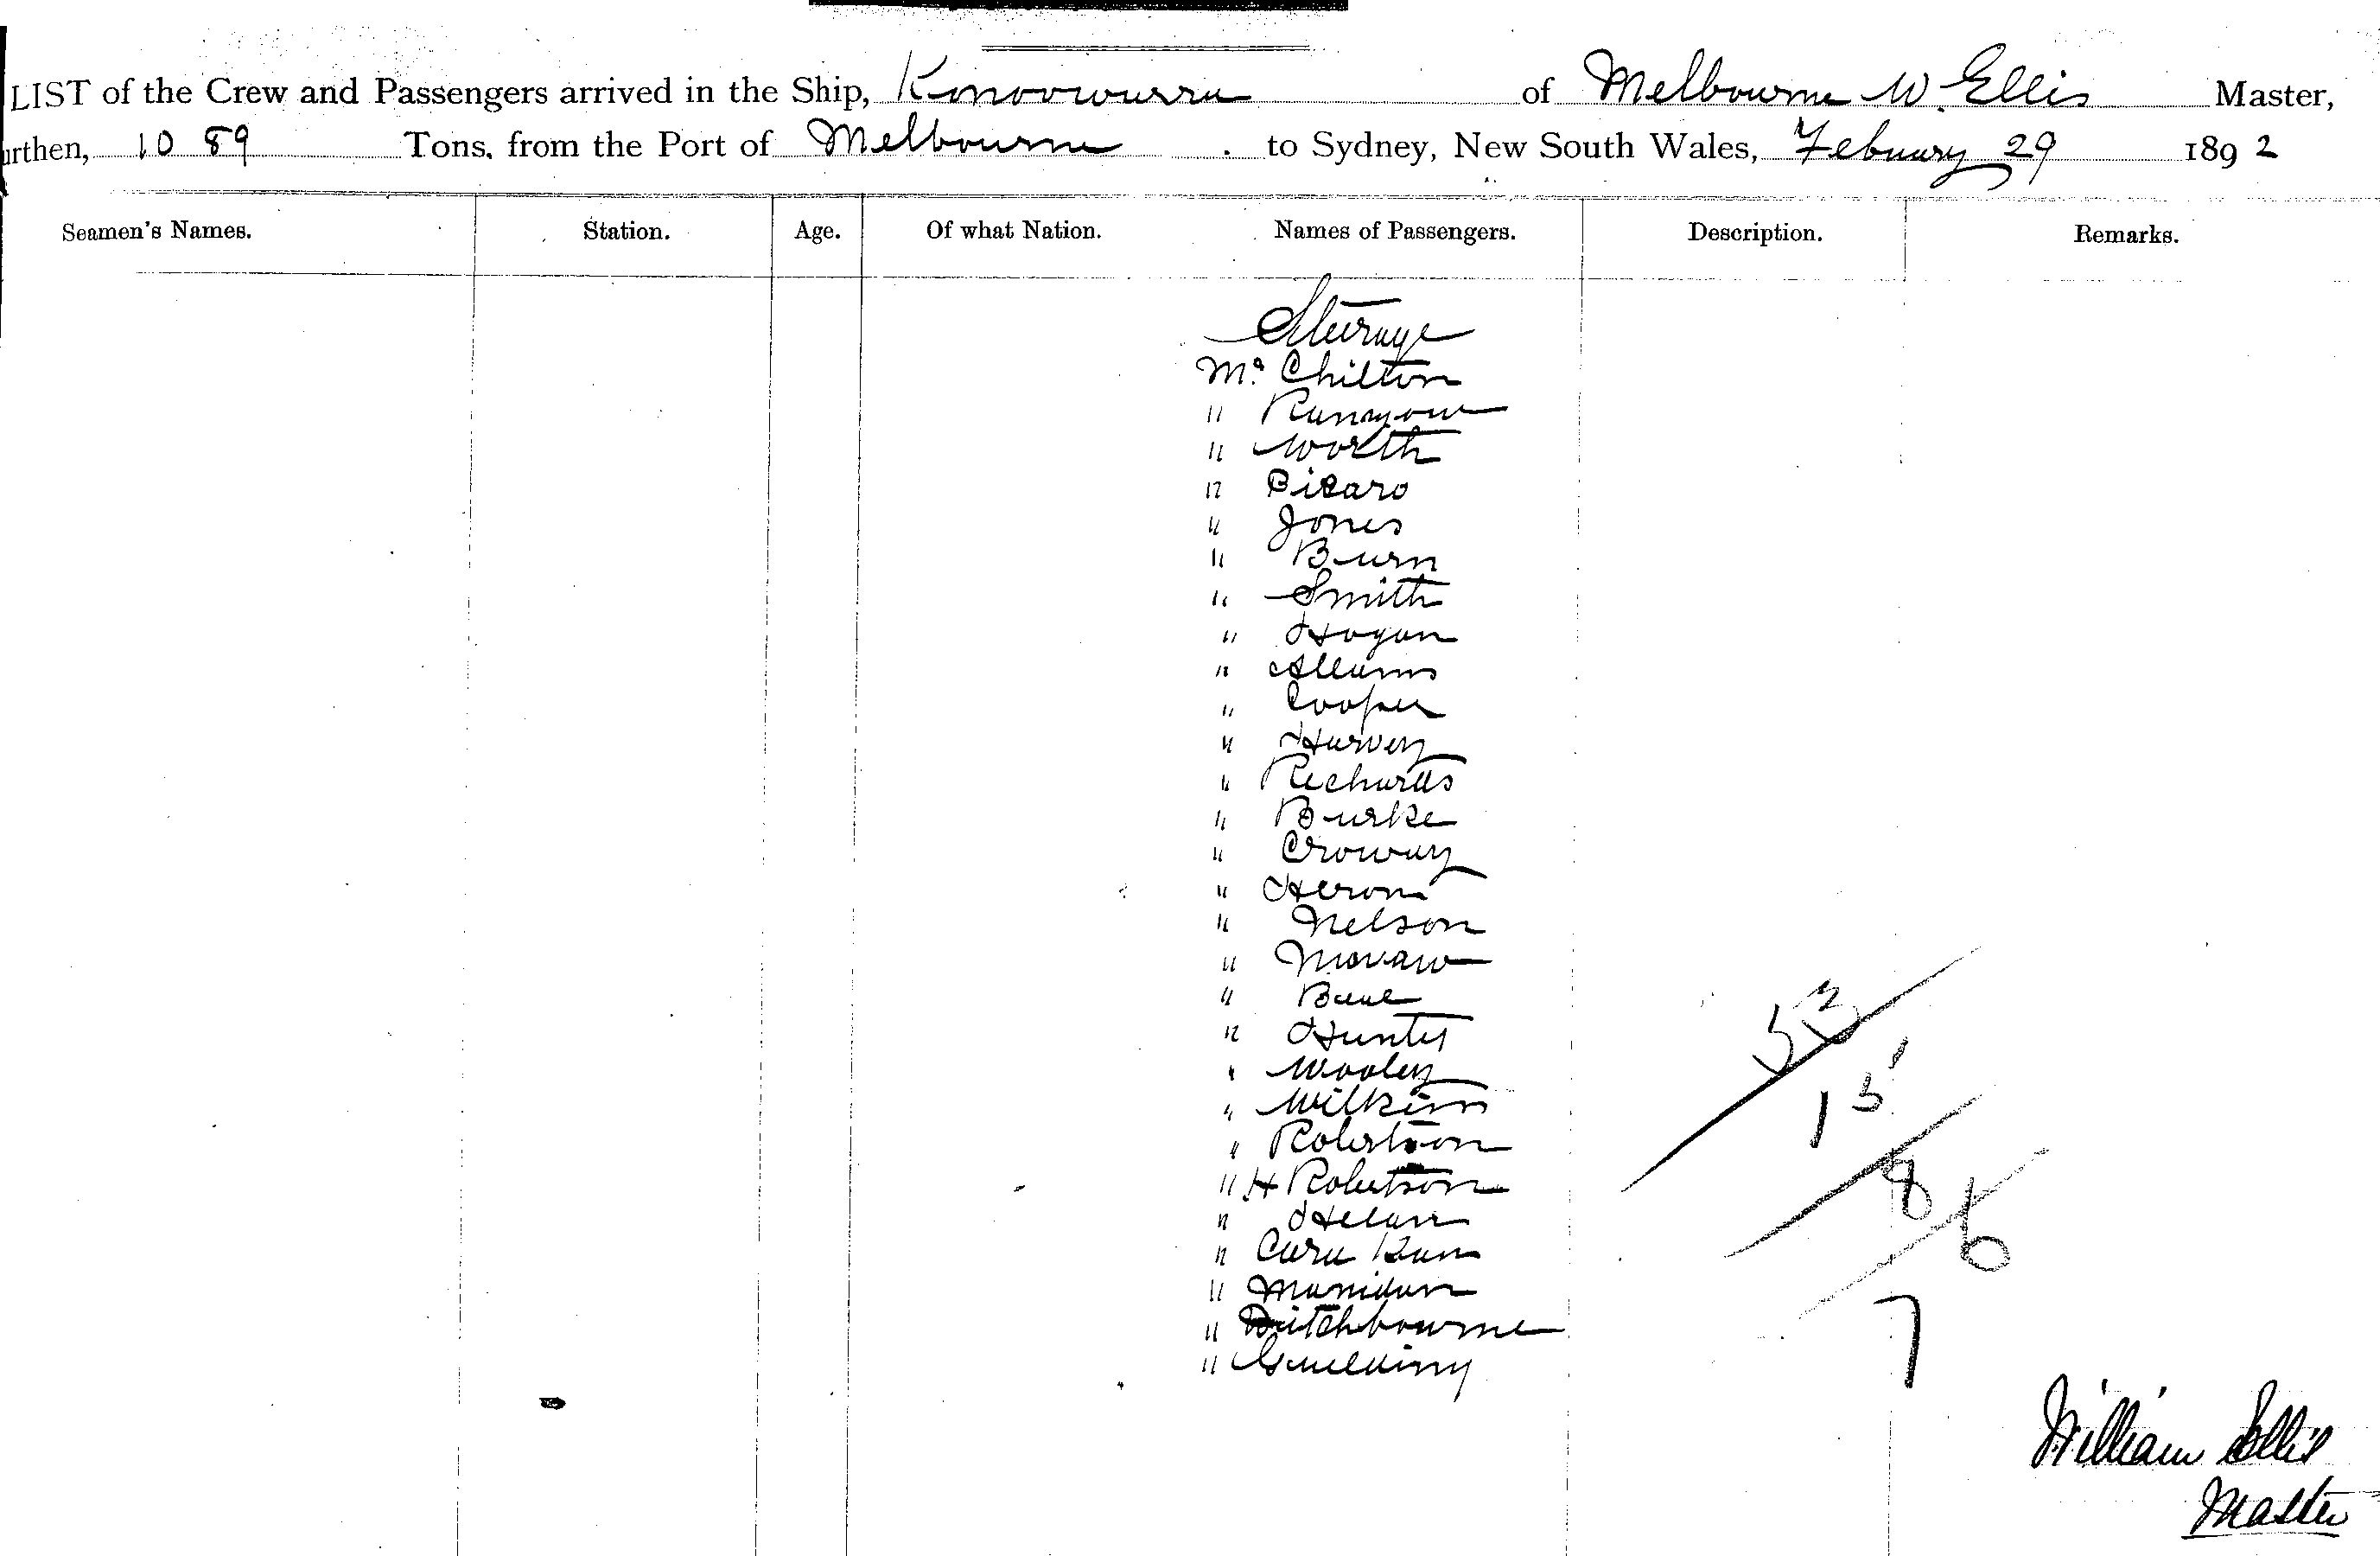 LIST of the Crew and Passengers arrived in the Ship, Konoowurra of Melbourne W. Ellis Master,
urthen, 1089 Tons, from the Port of Melbourne to Sydney, New South Wales, Febuary 29 1892
Seamen's Names. Station. Age. Of what Nation. Names of Passengers. Description. Remarks.
Steerage
Mr Chilton
" 
" Worth
" Picaro
" Jones
" Burn
" Smith
" Hogan
" Allams
" Cooper
" Harvey
" Richards
" Burke
" Croway
" Heron
" Nelson
" 
" 
" Hunter
" Wooley
" Wilkins
" Robertson
" H Robertson
" 
" 
" 
" Pitchbourne
" Goulding
53
13
8
6
7
William Ellis
Master